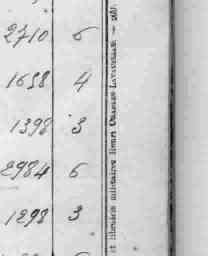 2710 6
1658 4
1398 3
2984 6
1298 3
et librairie militaires Henri CHARLES-LAVAUZELLE. —